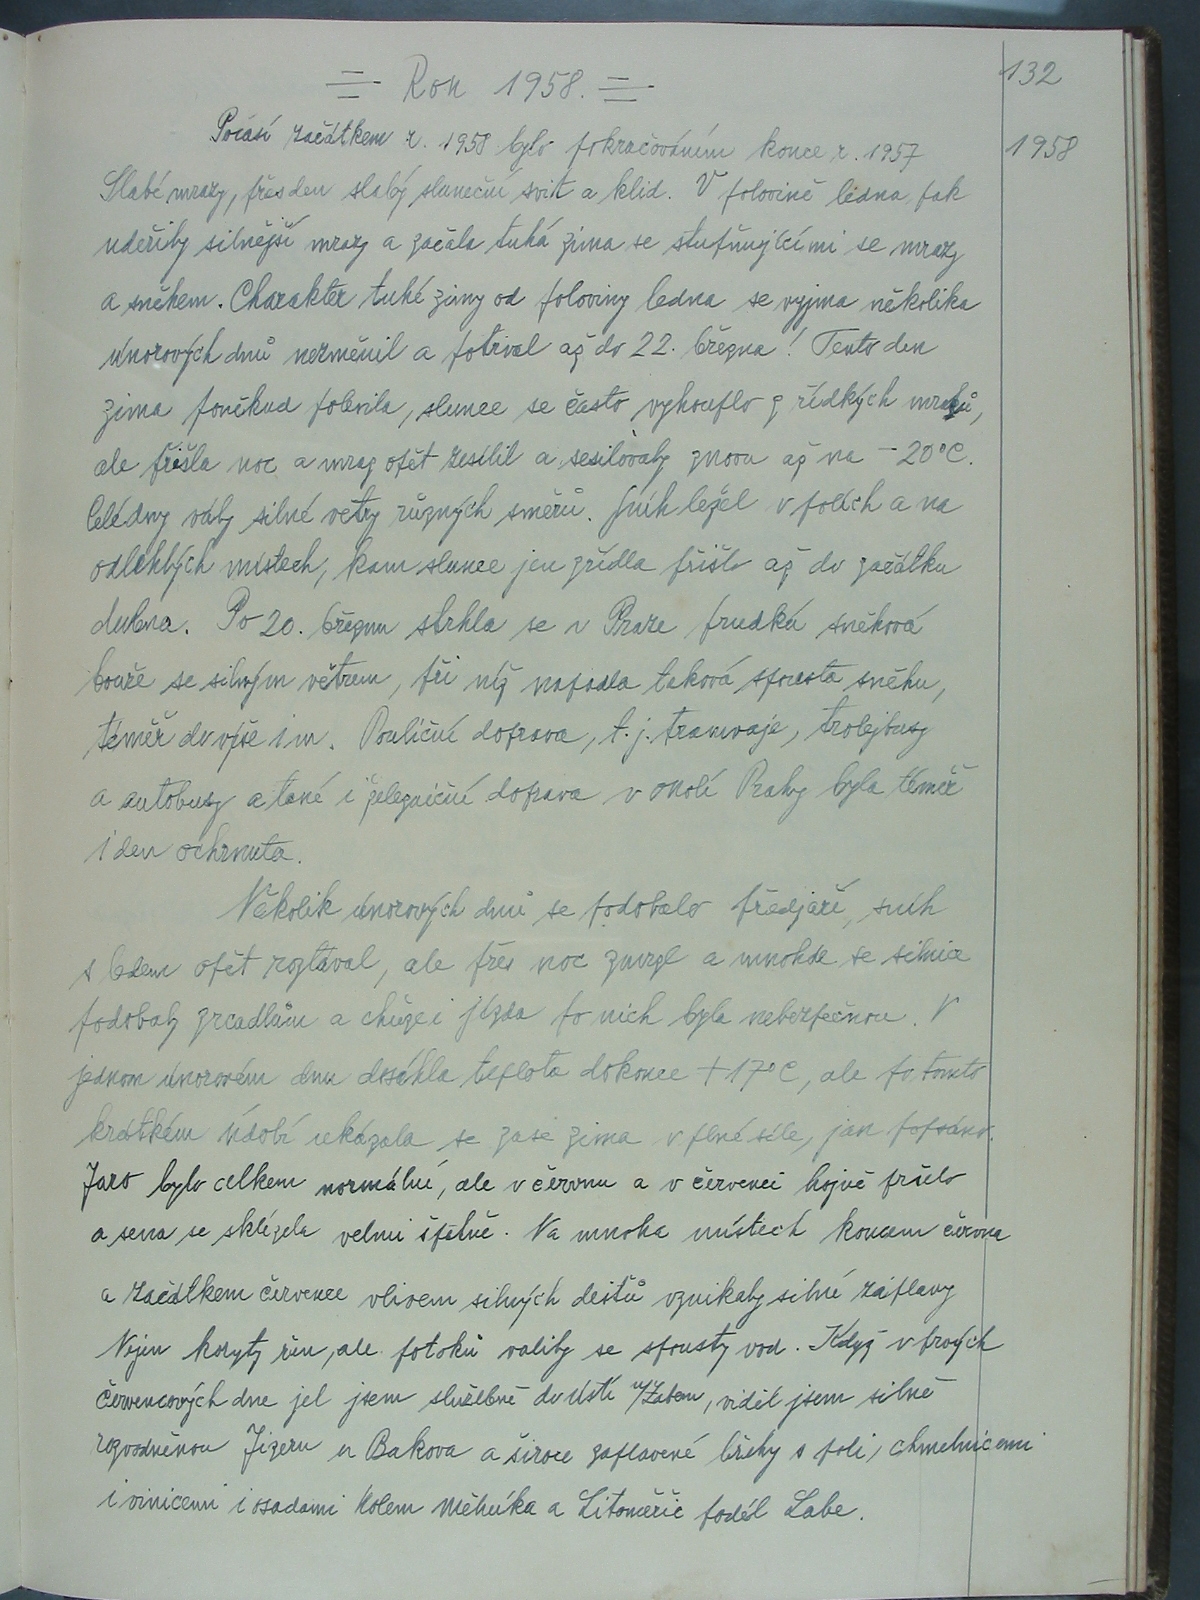 Rok 1958.
132
Počásí začátkem r. 1958 bylo pokračováním konce r. 1957
1958
Slabé mrazy, přes den slabý sluneční svit a klid. V polovině ledna pak
udeřily silnější mrazy a začala tuhá zima se stupňujícími se mrazy
a sněhem. Charakter tuhé zimy od poloviny ledna se vyjma několika
únorových dnů nezměnil a potrval až do 22. března! Tento den
zima poněkud polevila, slunce se často vyhouplo z řídkých mraků,
ale přišla noc a mraz opět zesílil a sesilovaly znovu až na -20°C.
Celé dny vály silné větry různých směrů. Sníh ležel v polích a na
odlehlých místech, kam slunce jen zřídla přišlo až do začátku
dubna. Po 20. březnu strhla se v Praze prudká sněhová
bouře se silným větrem, při níž napadla taková spousta sněhu,
téměř do výše 1 m. Pouliční doprava, t.j. tramvaje, trolejbusy
a autobusy a také i železniční doprava v okolí Prahy byla téměř
1 den ochrnuta.
Několik únorových dnů se podobalo předjaří, sníh
s ledem opět roztával, ale přes noc zmrzl a mnohde se silnice
podobaly zrcadlům a chůze i jízda po nich byla nebezpečnou. V
jednom únorovém dnu dosáhla teplota dokonce +17°C, ale po tomto
krátkém údobí ukázala se zase zima v plné síle, jak popsáno.
Jaro bylo celkem normální, ale v červnu a v červenci hojně pršelo
a sena se sklízela velmi špatně. Na mnoha místech koncem června
a začátkem července vlivem silných dešťů vznikaly silné záplavy
Nejen koryty řek, ale potoků valily se spousty vod. Když v prvých
červencových dne jel jsem služebně do Ústí n/Labem, viděl jsem silně
rozvodněnou Jizeru u Bakova a široce zaplavené břehy s poli, chmelnicemi
i vinicemi i osadami kolem Mělníka a Litoměřic podél Labe.